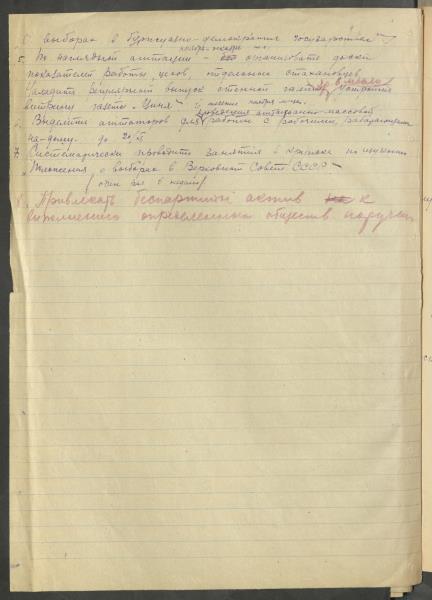 о выборах в буржуазно-демократич. государствах
ноябрь-декабрь
5. По наглядной агитации - организовать доски
показателей работы, цехов, отдельных стахановцев,
Наладить регулярный выпуск стенной газеты, 2 р. в месяц. Устроить
витрину газет.
проведения агитационно-массовой
6. Выделить агитаторов для работы с рабочими,
на-дому. до 20/
7. Систематически проводить занятия в кружке по изучению
"Положения о выборах в Верховный Совет СССР"
один раз в неделю
8. Привлекать беспартийный актив к
выполнению определенных обществ. поручен.